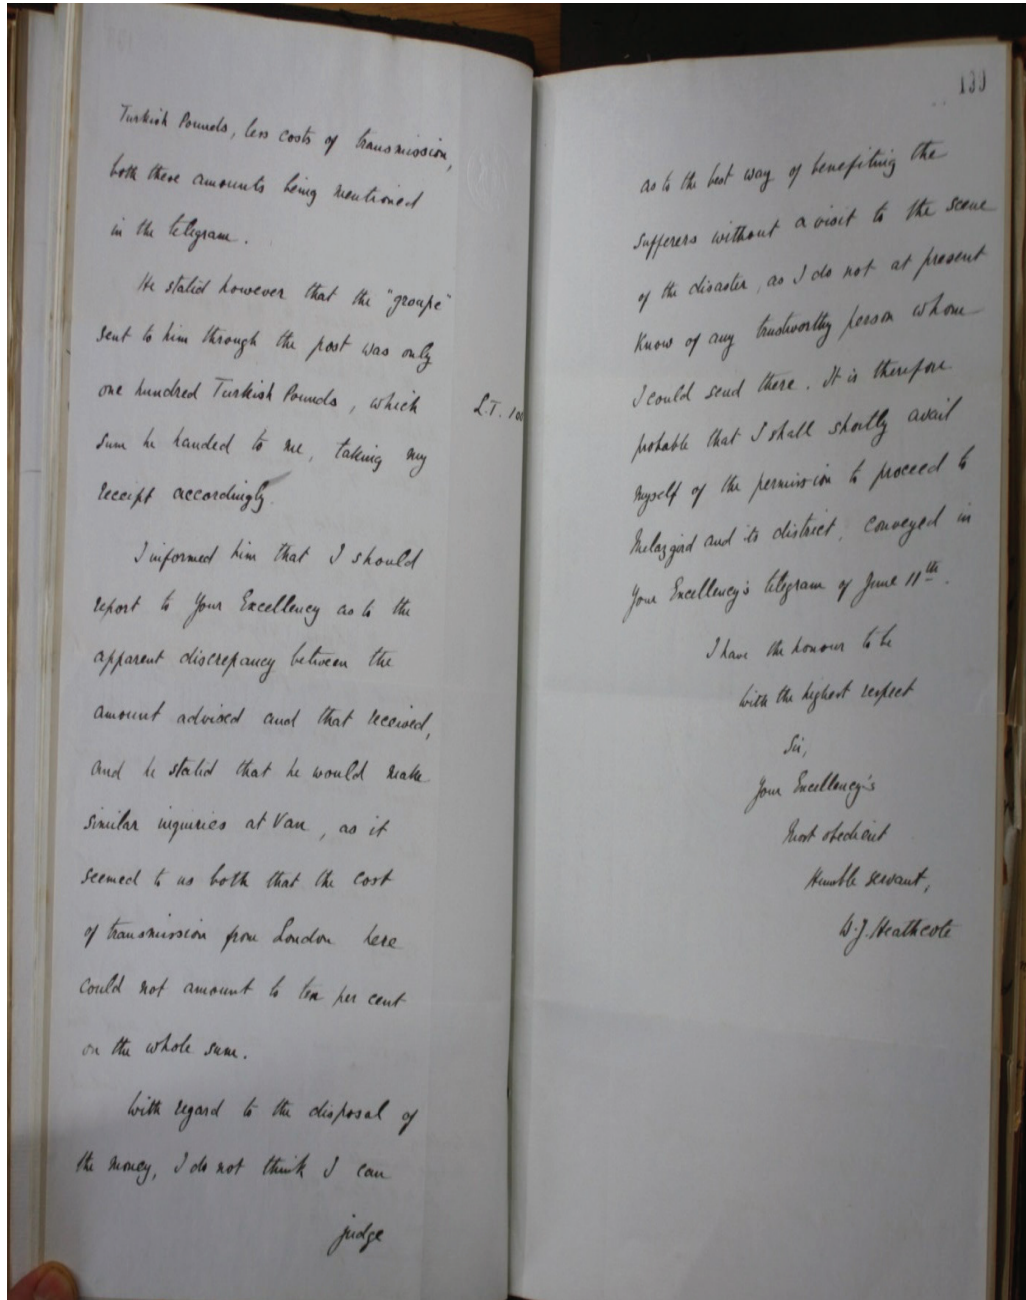 Turkish Pounds, less costs of transmission,
both these amounts being mentioned
in the telegram.
He stated however that the "groupe"
sent to him through the post was only
one hundred Turkish Pounds, which
L.T. 100
sum he handed to me, taking my
receipt accordingly.
I informed him that I should
report to Your Excellency as to the
apparent discrepancy between the
amount advised and that received,
and he stated that he would make
similar inquiries at Van, as it
seemed to us both that the cost
of transmission from London here
could not amount to ten per cent
on the whole sum.
With regard to the disposal of
the money, I do not think I can
judge
139
as to the best way of benefiting the
sufferers without a visit to the scene
of the disaster, as I do not at present
know of any trustworthy person whom
I could send there. It is therefore
probable that I shall shortly avail
myself of the permission to proceed to
Melazgird and its district, conveyed in
Your Excellency's telegram of June 11th.
I have the honour to be
with the highest respect
Sir,
Your Excellency's
Most obedient
Humble servant,
W.J. Heathcote